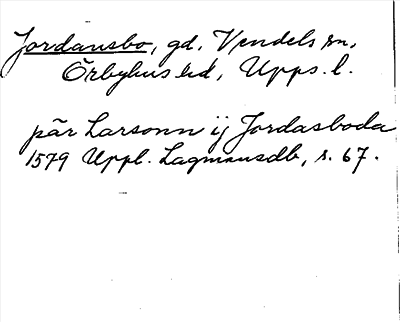 Jordansbo, gd, Vendels sn,
Örbyhus hd, Upps. l.
pär Larsonn ij Jordasboda
1579 Uppl. Lagmansdb, s. 67.